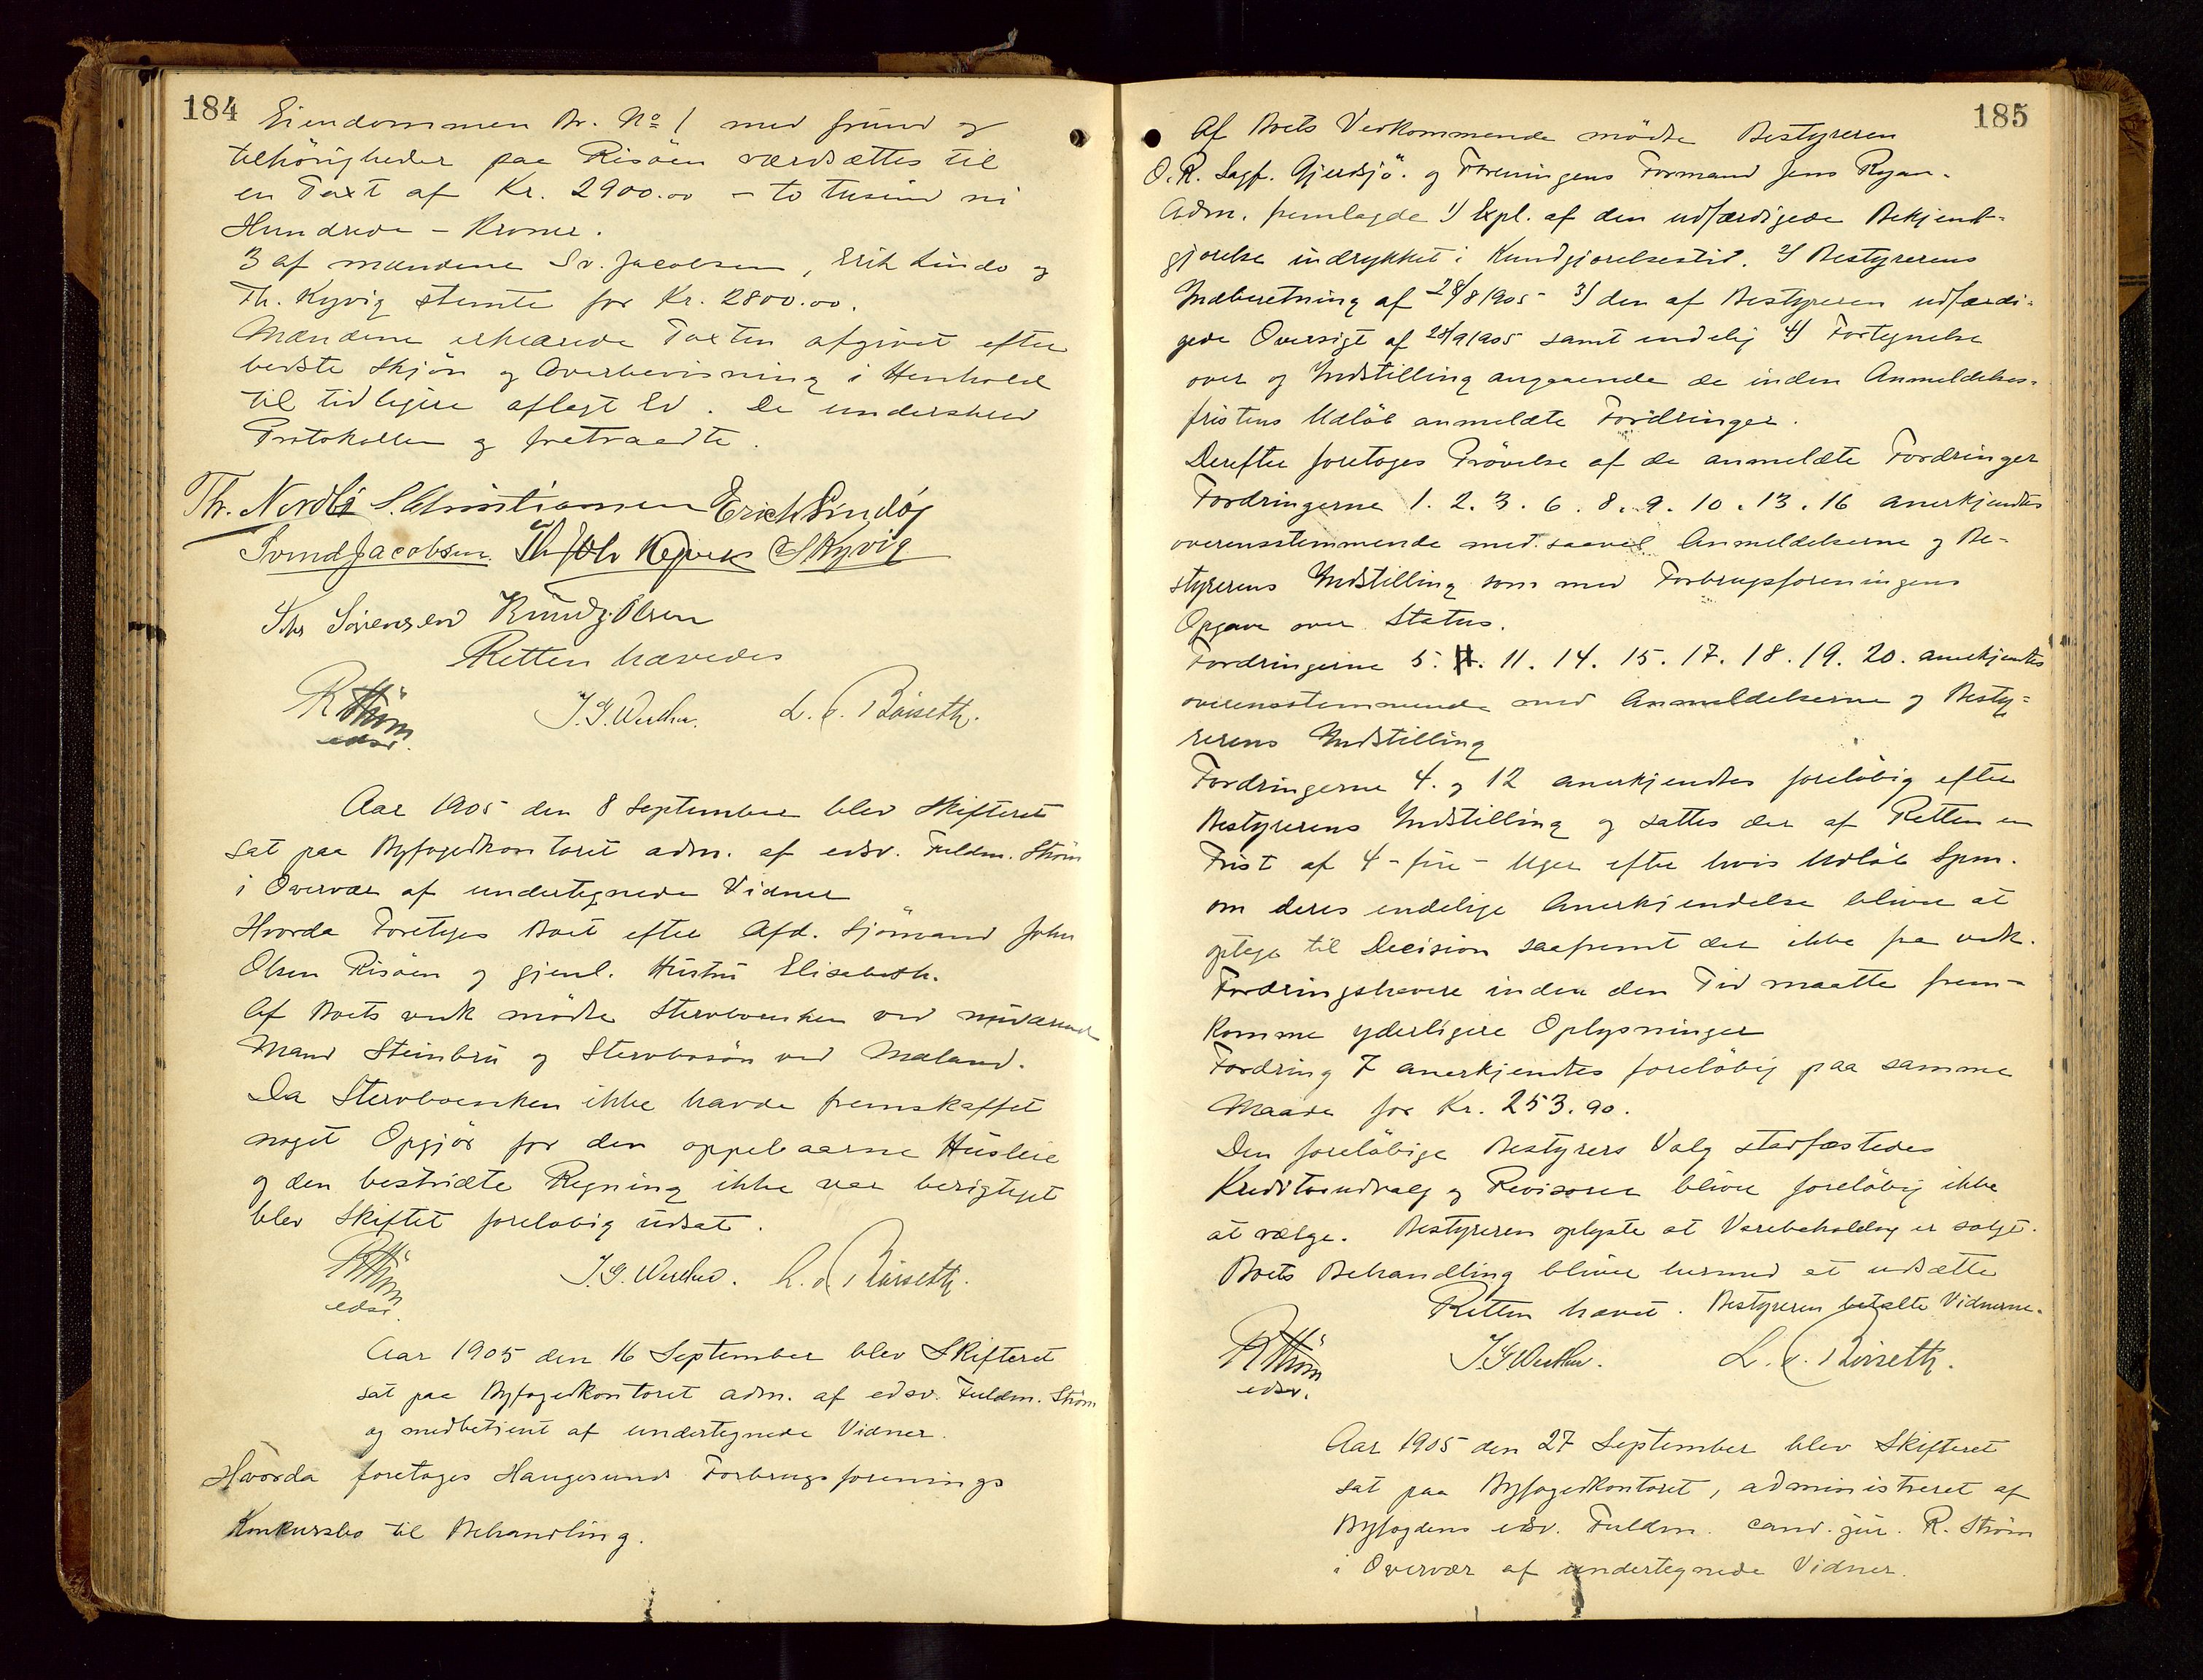 184
Eiendommen Br. No 1 med grund og
tilhörigheder paa Risöen værdsættes til
en Taxt af Kr. 2900.00 - to tusind ni
Hundrede - Kroner.
3 af mændene Sv. Jacobsen, Erik Lindö og
Th. Kyvig stemte for Kr. 2800.00.
Mændene erklærede Taxten afgivet efter
bedste Skjön og Overbevisning i Henhold
til tidligere aflagt Ed. De underskrev
Protokollen og fratraadte.
Th. Nordbö S. Christiansen Erich Lindøy
Svend Jacobsen. S Kyvig
Sörensen Knud J. Olsen
Retten hævedes
R Ström J. G. Werther. L. C. Börseth.
edsv.
Aar 1905 den 8 September blev Skifteret
sat paa Byfogedkontoret adm. af edsv. Fuldm. Ström
i Overvær af undertegnede Vidner
Hvorda Foretoges Boet efter Afd. Sjömand John
Olsen Risöen og gjenl. Hustru Elisabeth.
Af Boets vedk mödte Stervboenken ved nuværende
Mand Steinbru og Stervbosön ved Mæland.
Da Stervboenken ikke havde fremskaffet
noget Opgjör for den oppebaarne Husleie
og den bestridte Regning ikke var berigtiget
blev Skiftet foreløbig udsat.
R Ström J. G. Werther. L. C. Börseth.
edsv.
Aar 1905 den 16 September blev Skifteret
sat paa Byfogedkontoret adm. af edsv. Fuldm. Ström
og medbetjent af undertegnede Vidner.
Hvorda foretoges Haugesunds Forbrugsforenings
Konkursbo til Behandling.
185
Af Boets Vedkommende mödte Bestyreren
O. R. Sagf. Gjerdsjö. og Foreningens Formand Jens Ryan.
Adm. fremlagde 1) Expl. af den udfærdigede Bekjendt-
gjørelse indrykket i Kundgjørelsestid. 2) Bestyrerens
Indberetning af 28/8 1905 3) den af Bestyreren udfærdi-
gede Oversigt af 28/9 1905 samt endelig 4) Fortegnelse
over og Indstilling angaaende de inden Anmeldelses-
fristens Udløb anmeldte Fordringer.
Derefter foretoges Prövelse af de anmeldte Fordringer
Fordringerne 1. 2. 3. 6. 8. 9. 10. 13. 16 anerkjendtes
overensstemmende med saavel Anmeldelserne og Be-
styrerens Indstilling som med Forbrugsforeningens
Opgave over Status.
Fordringerne 5. 11. 14. 15. 17. 18. 19. 20. anerkjendtes
overensstemmende med Anmeldelserne og Besty-
rerens Indstilling
Fordringerne 4. og 12 anerkjendtes foreløbig efter
Bestyrerens Indstilling og sattes der af Retten en
Frist af 4 - fire - Uger efter hvis Udløb Spm.
om deres endelige Anerkjendelse bliver at
optage til Decision saafremt der ikke fra vedk.
Fordringshavere inden den Tid maatte frem-
komme yderligere Oplysninger
Fordring 7 anerkjendtes foreløbig paa samme
Maade for Kr. 253.90.
Den foreløbige Bestyrers Valg stadfæstedes
Kreditorudvalg og Revisorer bliver foreløbig ikke
at vælge. Bestyreren oplyste at Varebeholdng er solgt.
Boets Behandling bliver hermed at udsætte
Retten hævet. Bestyreren betalte Vidnerne.
R Ström J G Werther. L. C. Börseth.
edsv.
Aar 1905 den 27 September blev Skifteret
sat paa Byfogedkontoret, administreret af
Byfogdens edsv. Fuldm. cand. jur. R. Ström
i Overvær af undertegnede Vidner.